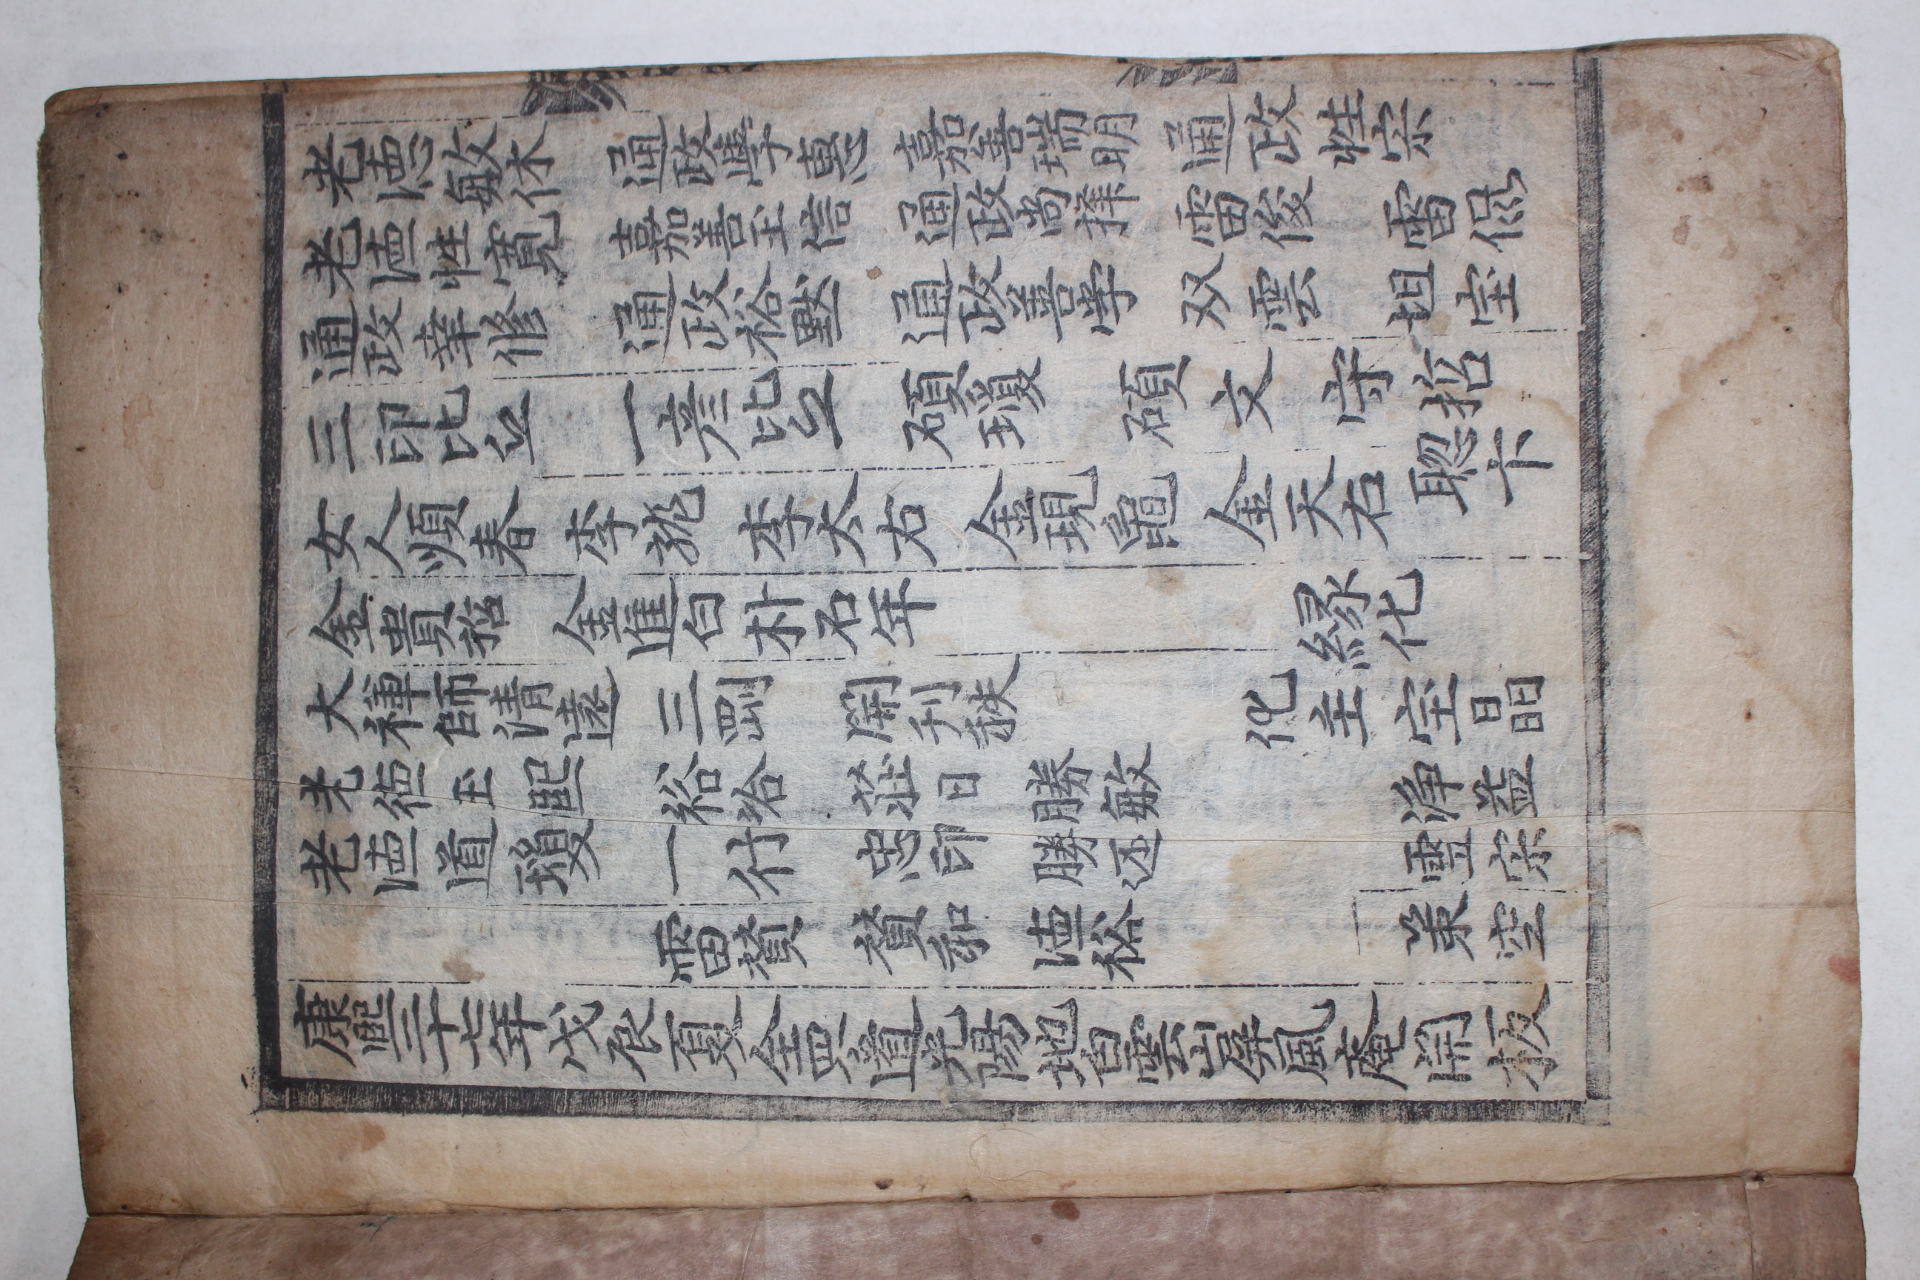 老德敏休 通政學惠 嘉善瑞明 通政性宗
老徳性寬 嘉善玉信 通政尚擇 雷俊 雷侃
通政幸修 通政裕默 通政善学 双雲 坦宝
三印比丘 一彦比丘 碩瓊 碩文 守哲
女人順春 李龍 李太右 金現龜 金天右 聡卞
金貴招 金進白 朴石年 縁化
大禅師清遠 三剛 開刋秩 化主宝晶
老徳玉熙 裕洽 莊日 勝敏 浄益
老徳道瓊 一行 忠印 勝还 雪宗
雷賛 賛和 徳裕 一 策空
康熙三十七年戊辰夏全罗道光陽地白雲山屏風庵開板